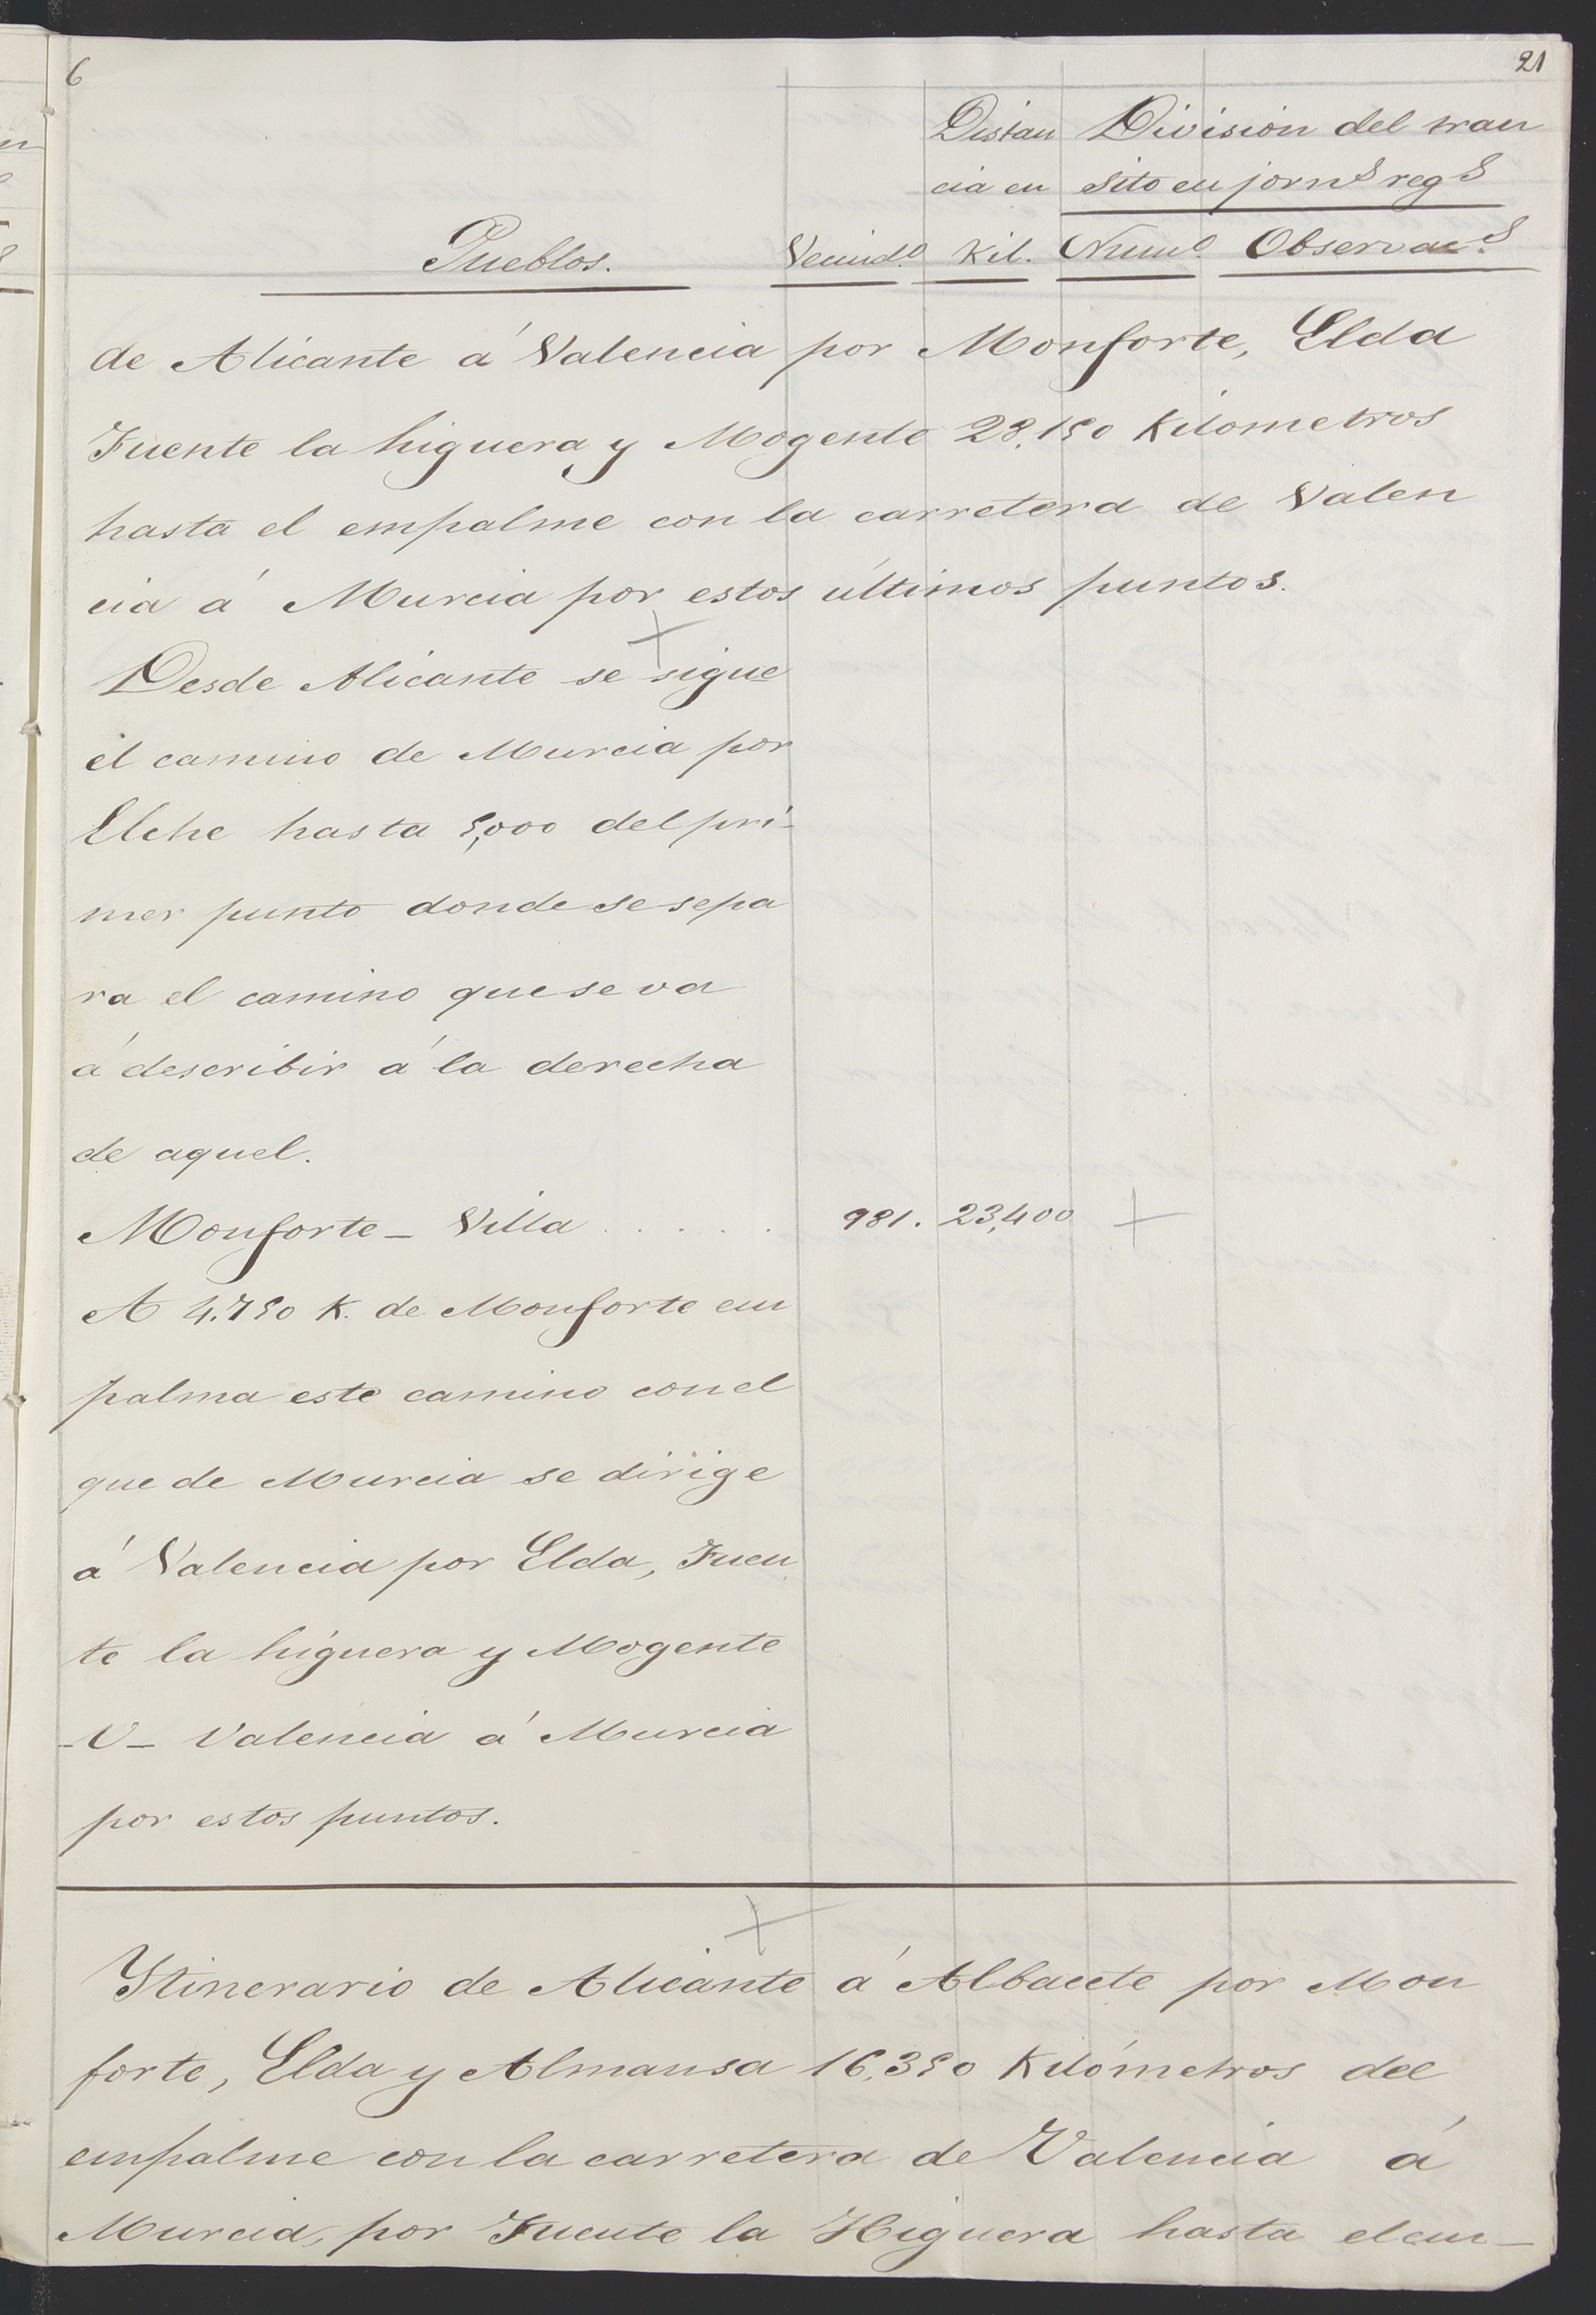 6
21
Distan División del tran
cia en sito en jorn.s reg.s
Pueblos. Vecind.o Kil. Num.o Observac.s
de Alicante á Valencia por Monforte, Elda
Fuente la higuera y Mogente 28,150 Kilometros
hasta el empalme con la carretera de Valen
cia á Murcia por estos últimos puntos.
Desde Alicante se sigue
el camino de Murcia por
Elche hasta 5,000 del pri-
mer punto donde se sepa
ra el camino que se va
á describir á la derecha
de aquel.
Monforte - Villa . . . . . 981. 23,400
A 4.750 K. de Monforte em
palma este camino con el
que de Murcia se dirige
á Valencia por Elda, Fuen
te la higuera y Mogente
-V- Valencia á Murcia
por estos puntos.
Ytinerario de Alicante á Albacete por Mon
forte, Elda y Almansa 16,350 Kilómetros del
empalme con la carretera de Valencia á
Murcia, por Fuente la Higuera hasta el em-